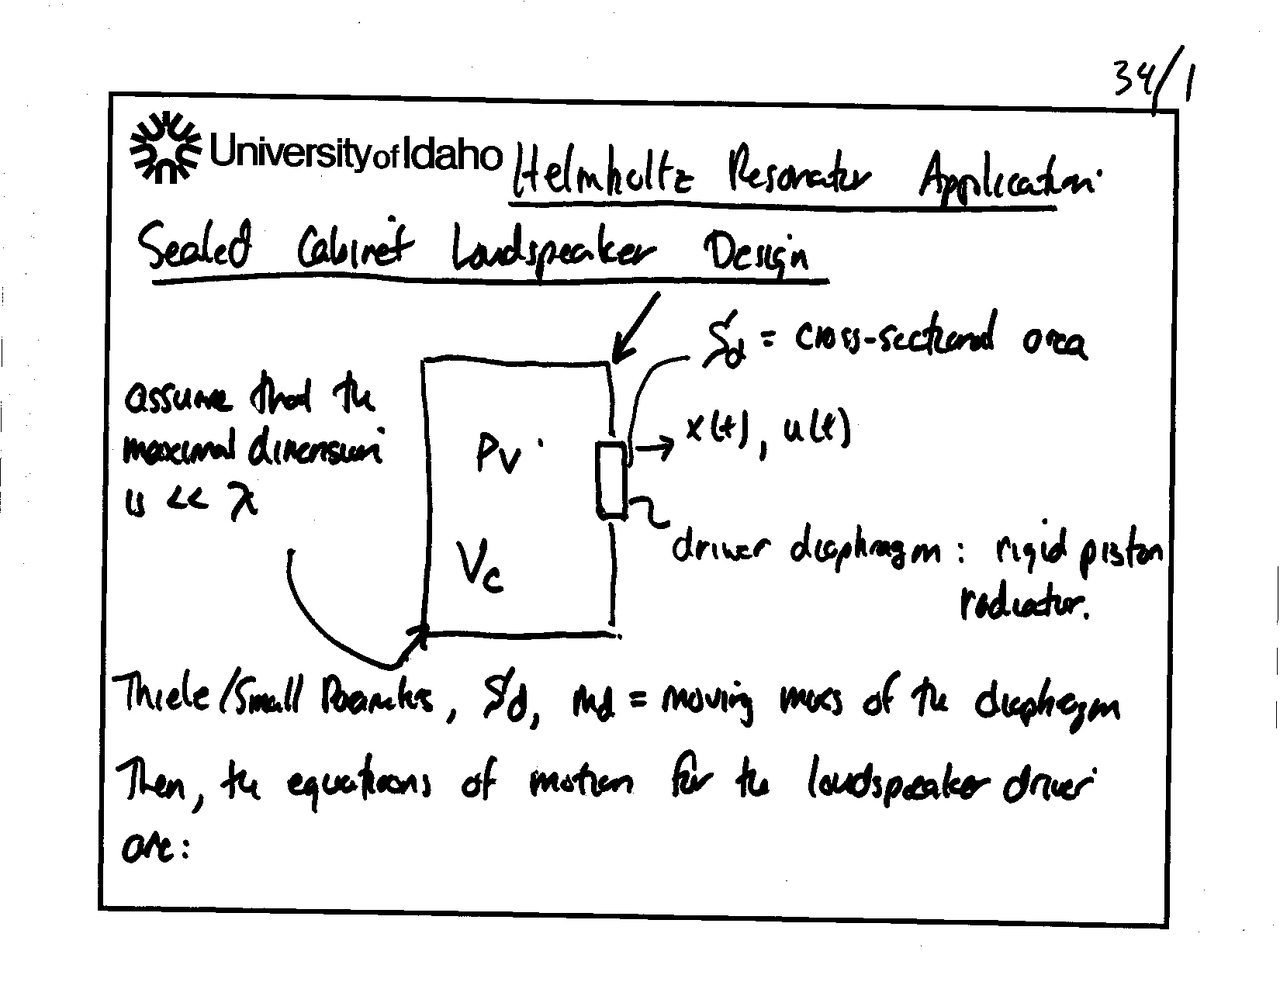 34/1
University of Idaho Helmholtz Resonator Application:
Sealed Cabinet Loudspeaker Design
Sd = cross-sectional area
assume that the
maximal dimension
is << λ
x(t), u(t)
Pv
Vc
driver diaphragm: rigid piston
radiator.
Thiele/Small Parameters, Sd, md = moving mass of the diaphragm
Then, the equations of motion for the loudspeaker driver
are: